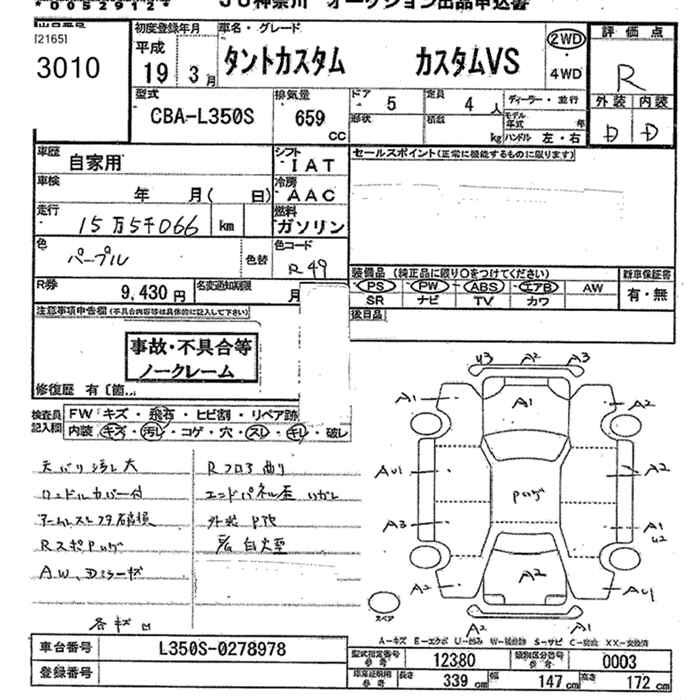 JU神奈川 オークション出品申込書
[2165]
3010
初度登録年月
平成
19年 3月
車名・グレード
タントカスタム カスタムVS
2WD
4WD
評価点
R
外装 内装
D D
型式
CBA-L350S
排気量
659
CC
ドア 5
定員 4人
ディーラー・並行
形状
積載 kg
モデル年式 年
ハンドル 左・右
車歴
自家用
シフト
IAT
セールスポイント(正常に機能するものに限ります)
車検
年 月( 日)
冷房
AAC
走行
15万5千066 km
燃料
ガソリン
色
パープル
色替
色コード
R49
装備品 (純正品に限り○をつけてください)
新車保証書
PS PW ABS エアB AW
有・無
SR ナビ TV カワ
R券
9,430円
名変通知期限
月
後日品
注意事項申告欄(不具合内容等は具体的に記入して下さい)
事故・不具合等
ノークレーム
修復歴 有〔箇
検査員
記入欄
FW「キズ・飛石・ヒビ割・リペア跡
内装 キズ・汚レ・コゲ・穴・スレ・キレ・破レ
天バリ汚レ大
Rフロア曲り
ハンドルカバー付
エンドパネル歪
外装
A.W、Dミラーキズ
各キズ凹
U3 A2 A3
A1 A1 A2
AU1 A2
A3 A1
U2
A2 A2 AU1
A2 A1
スペア
A-キズ E-エクボ U-凹み W-補修跡 S-サビ C-腐食 XX-交換済
車台番号
L350S-0278978
登録番号
型式指定番号
参考
12380
類別区分番号
参考
0003
車庫証明用
参考
長さ 339cm 幅 147cm 高さ 172cm